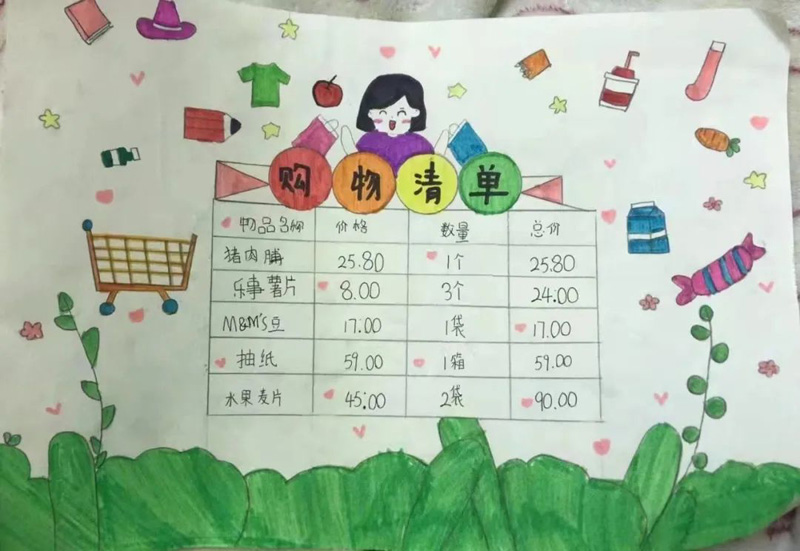 购物清单
物品名称 价格 数量 总价
猪肉脯 25.80 1个 25.80
乐事薯片 8.00 3个 24.00
M&M's豆 17.00 1袋 17.00
抽纸 59.00 1箱 59.00
水果麦片 45.00 2袋 90.00